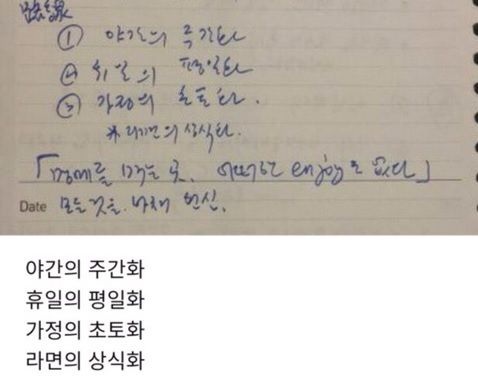 路線
① 야간의 주간화
② 휴일의 평일화
③ 가정의 초토화.
※ 라면의 상식화.
「명예를 먹는 곳. 어떠한 enjoy도 없다」
Date 모든 것을 바쳐 헌신.
야간의 주간화
휴일의 평일화
가정의 초토화
라면의 상식화